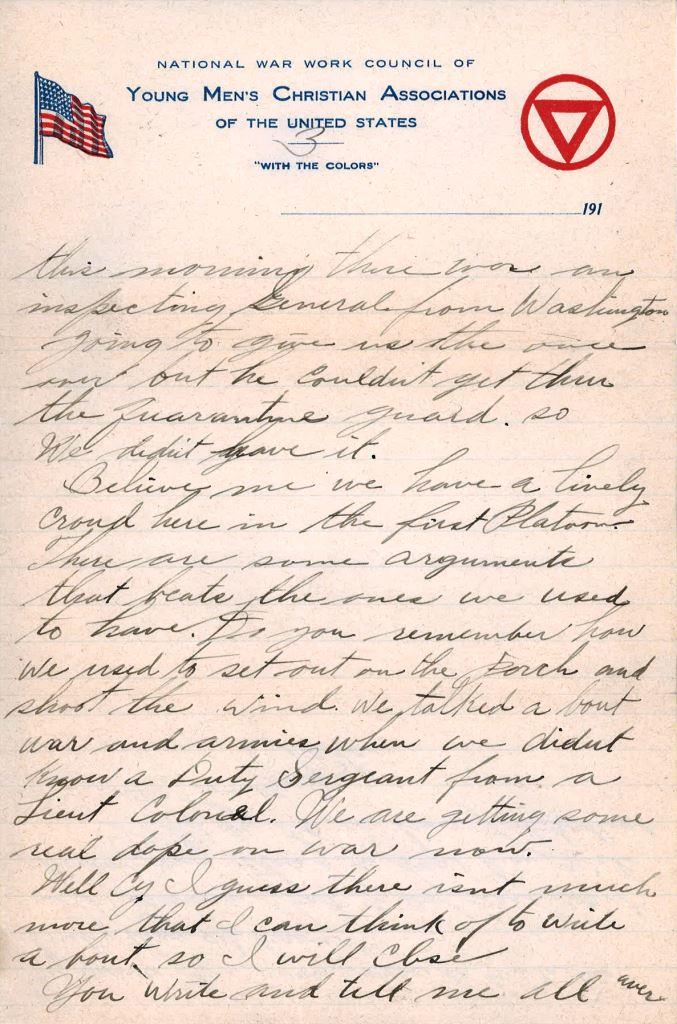 NATIONAL WAR WORK COUNCIL OF
YOUNG MEN'S CHRISTIAN ASSOCIATIONS
OF THE UNITED STATES
3
"WITH THE COLORS"
191
this morning there was an
inspecting General from Washington
going to give us the once
over but he couldn't get thru
the quarantine guard. so
We didn't have it.
Believe me we have a lively
croud here in the first Platoon.
There are some arguments
that beats the ones we used
to have. Do you remember how
we used to set out on the Porch and
shoot the wind. We talked a bout
war and armies when we didnt
know a Duty Sergeant from a
Lieut Colonel. We are getting some
real dope on war now.
Well Cy I guess there isnt much
more that I can think of to write
a bout, so I will close
You write and tell me all